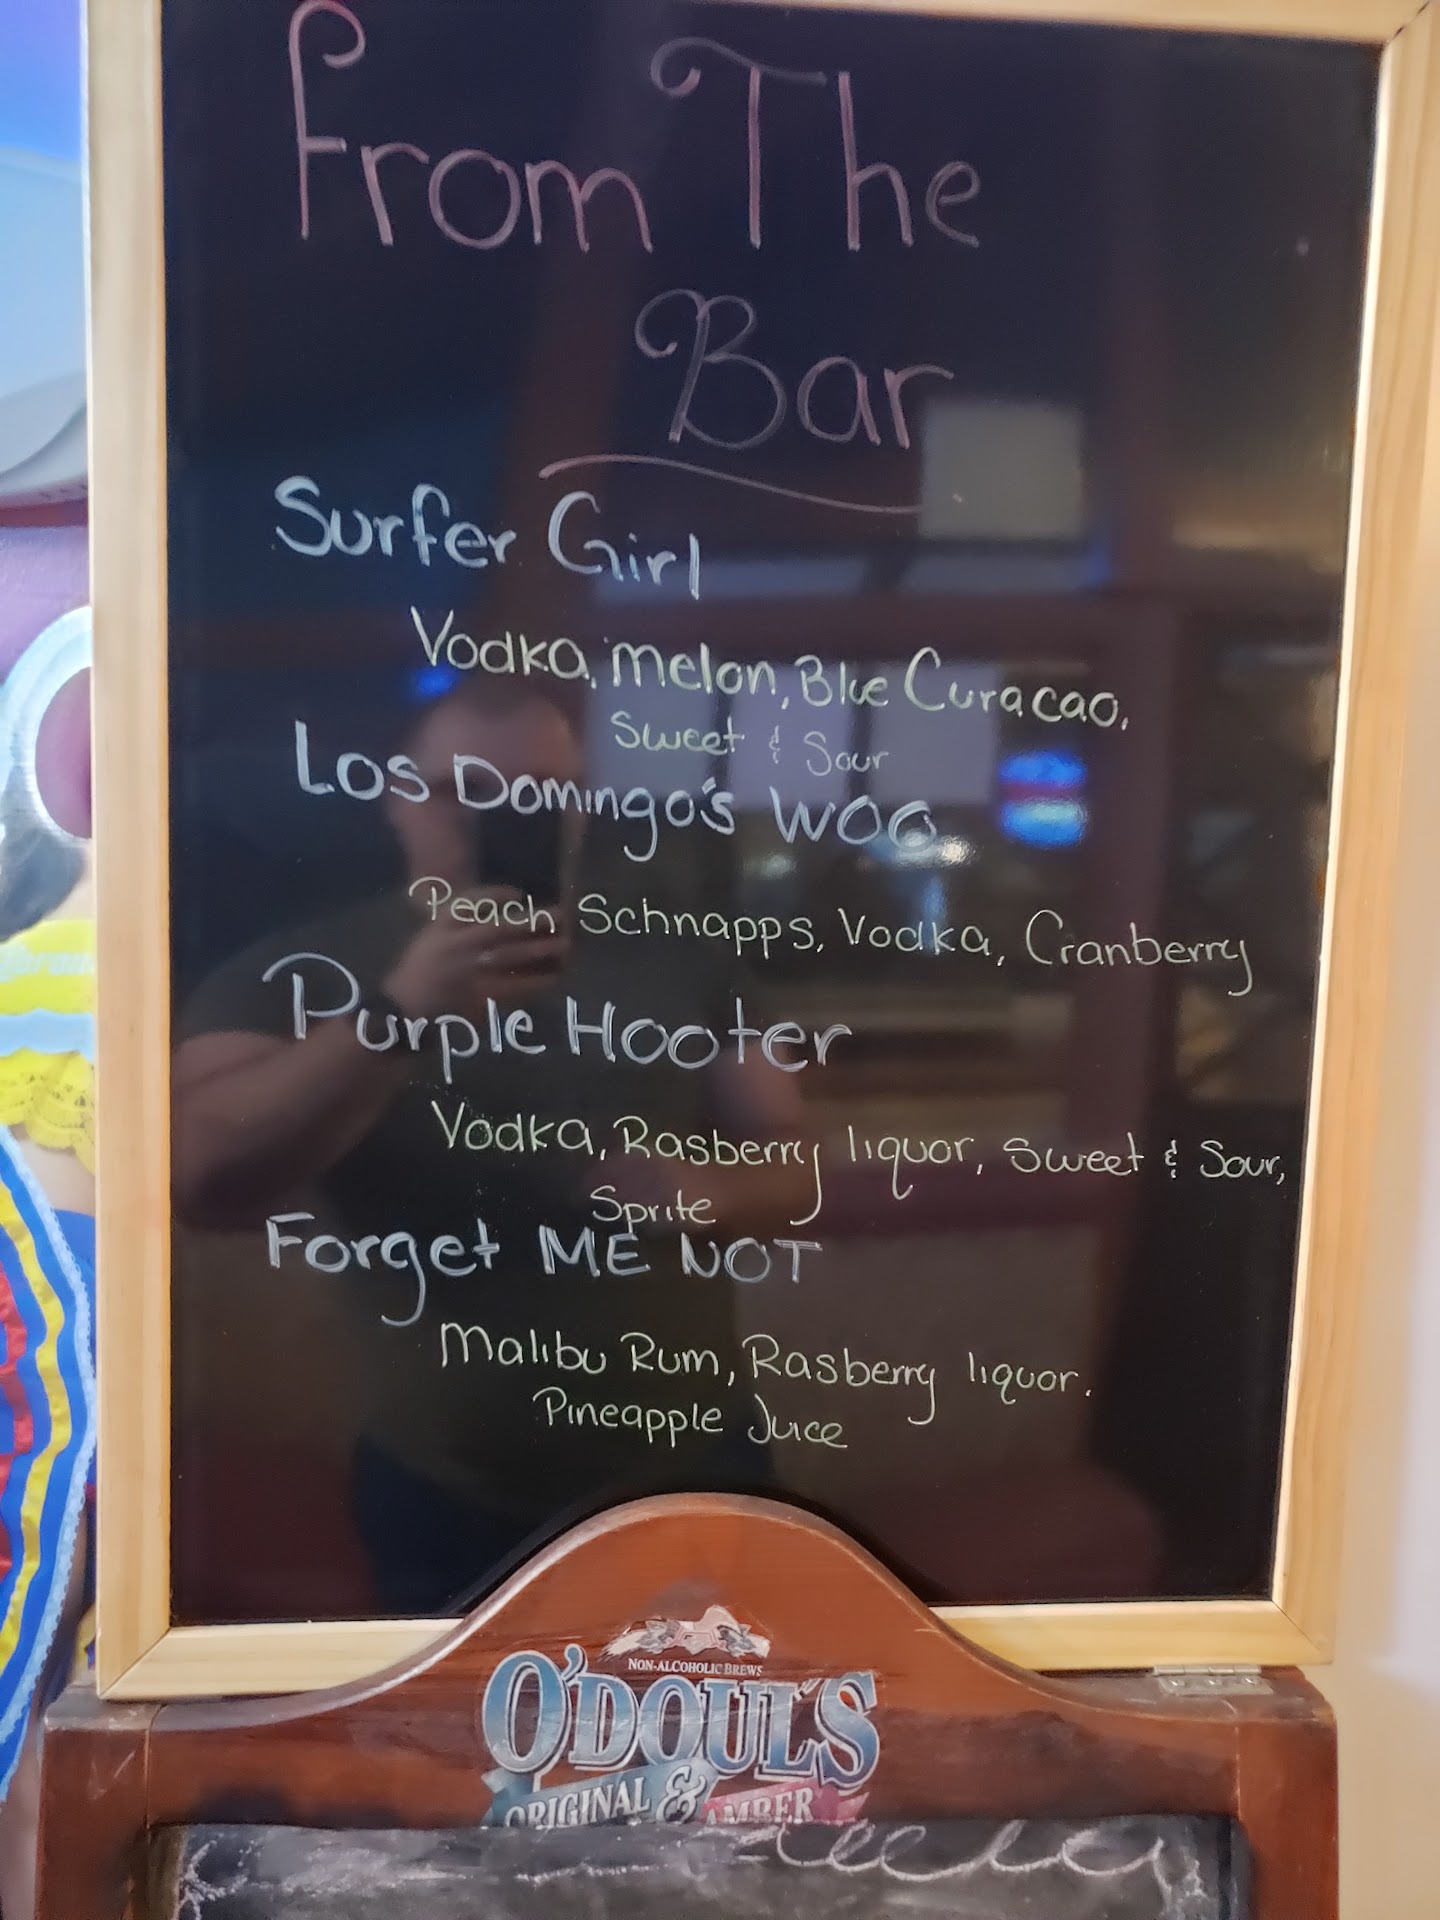 From The
Bar
Surfer Girl
Vodka, Melon, Blue Curacao,
Sweet & Sour
Los Domingo's WOO
Peach Schnapps, Vodka, Cranberry
Purple Hooter
Vodka, Rasberry liquor, Sweet & Sour,
Sprite
Forget ME NOT
Malibu Rum, Rasberry liquor.
Pineapple Juice
NON-ALCOHOLIC BREWS
O'DOUL'S
ORIGINAL & AMBER